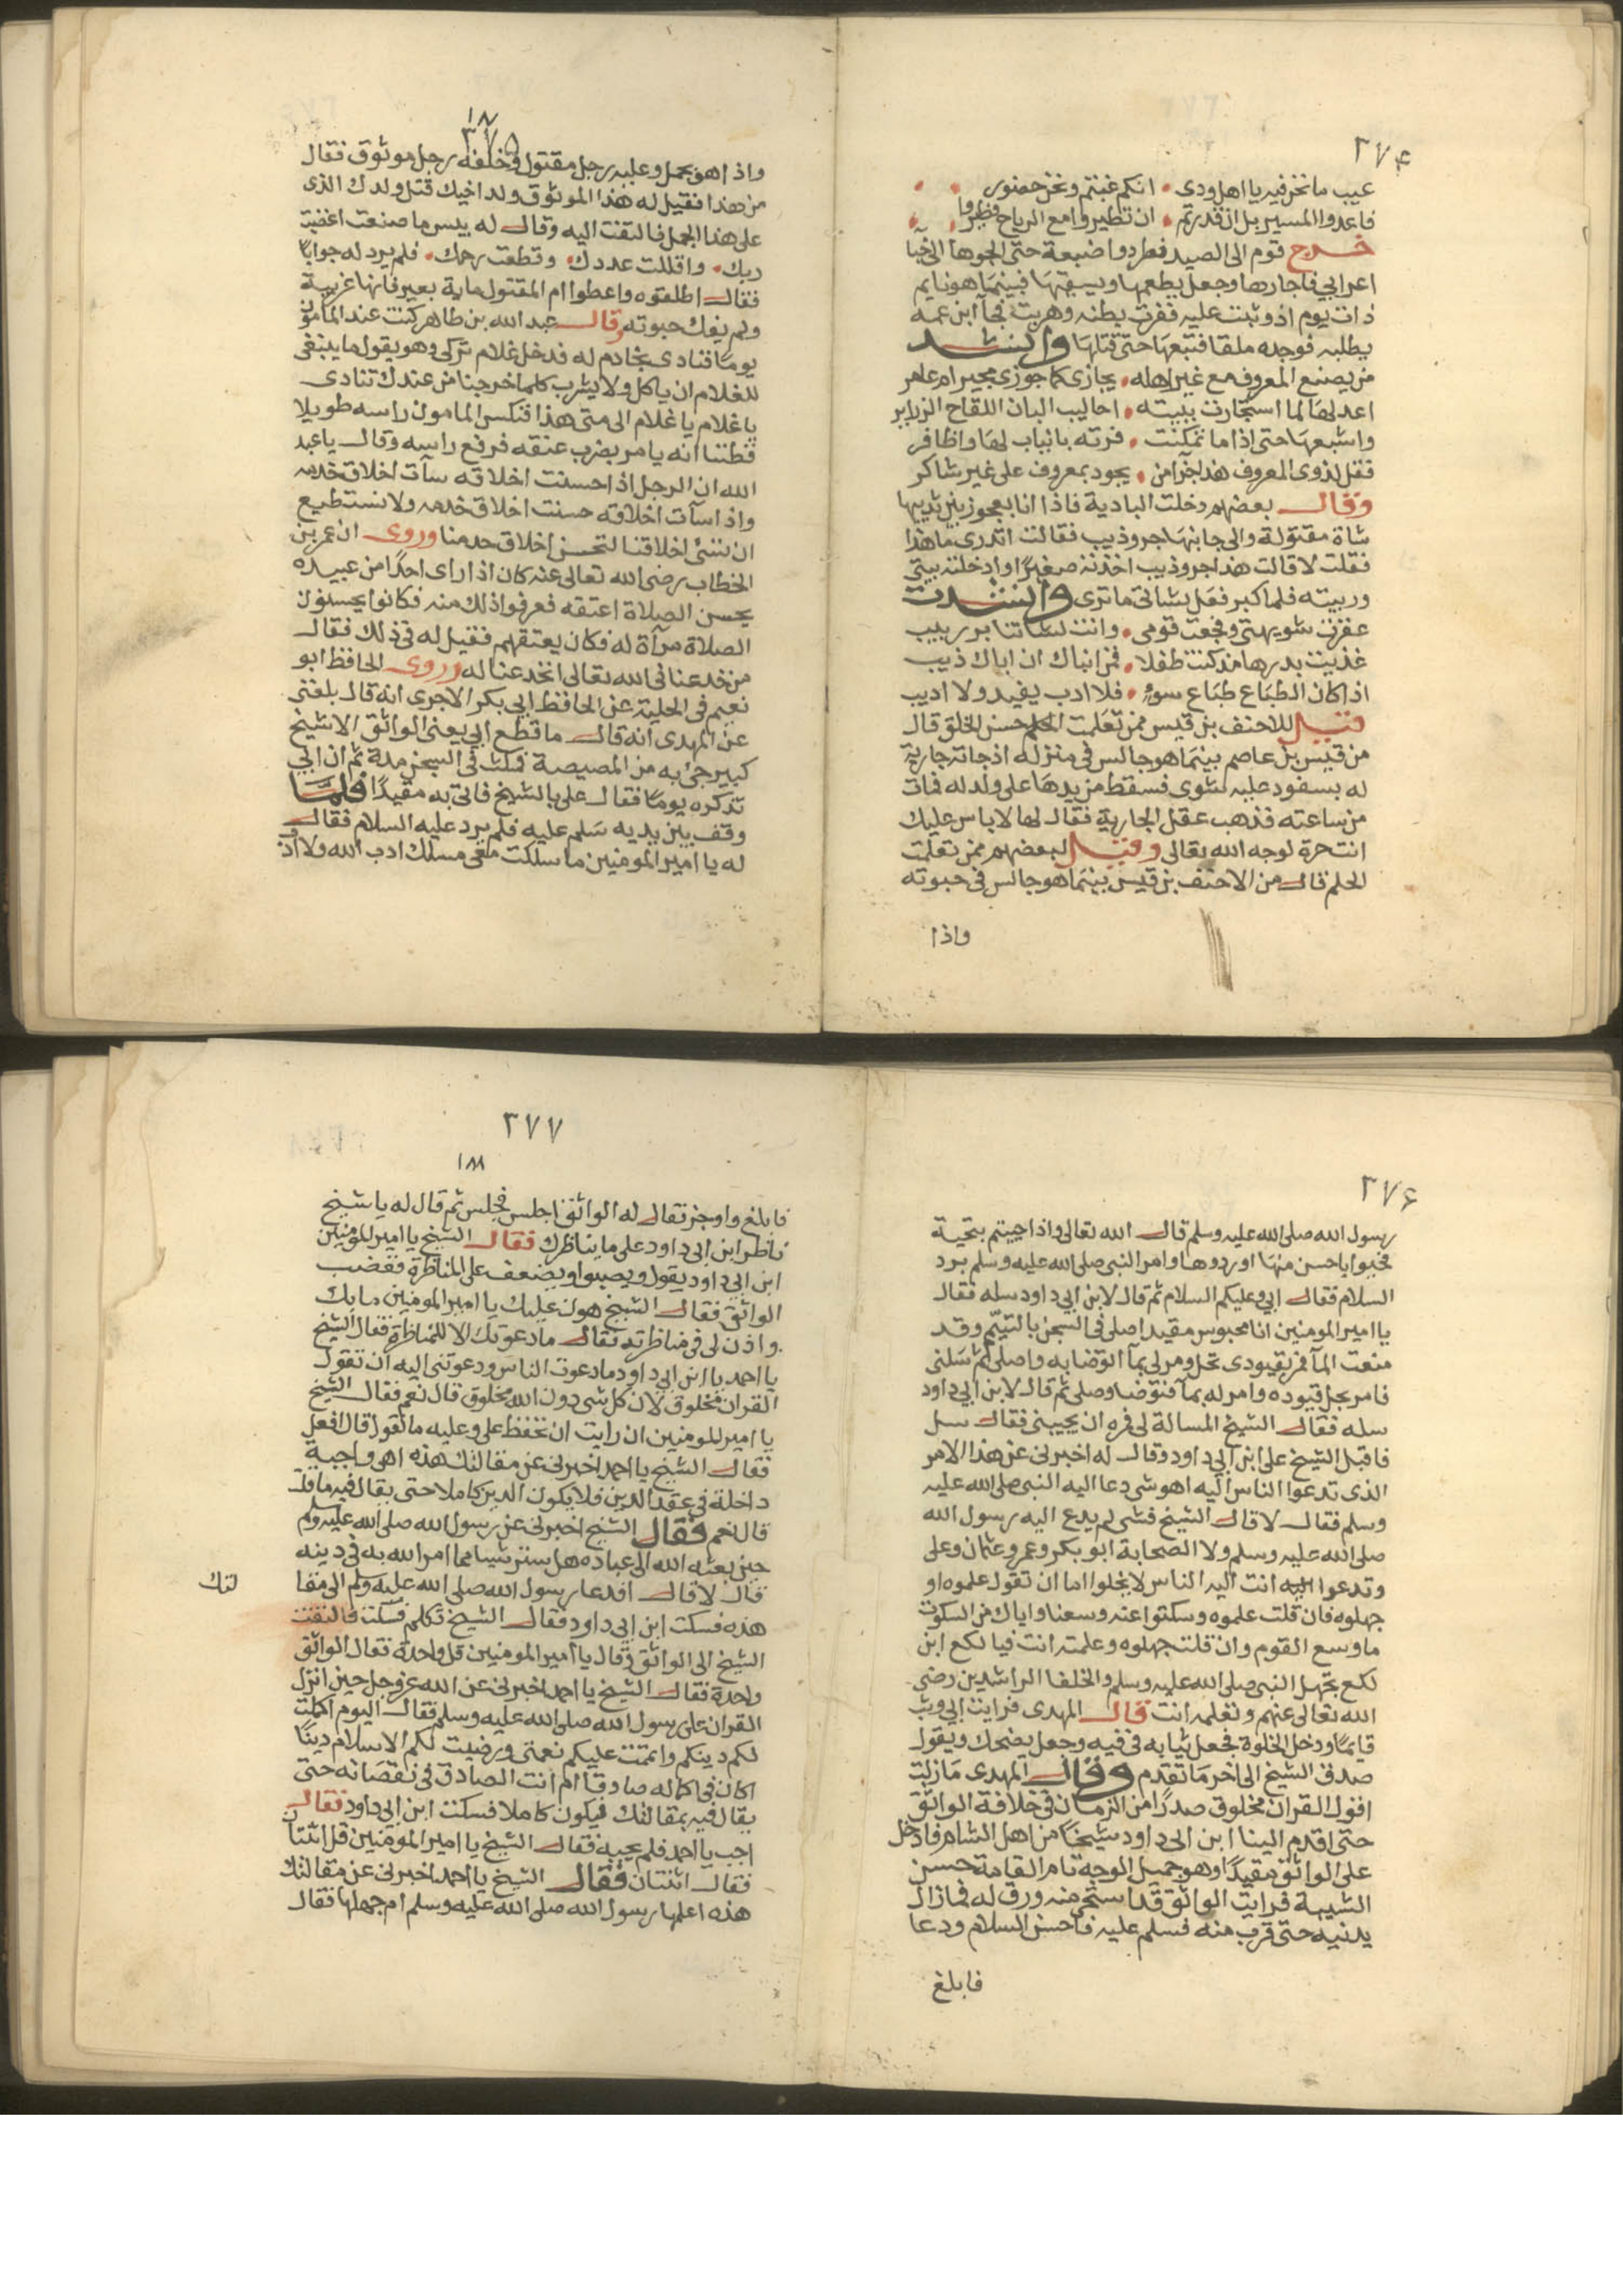 ٣٧٤
عيب ما نحن فيه يا اهل ودى • انكم غبتم ونحن حضور
فاعدوا المسير بل ان قدرتم • ان تطيروا مع الرياح فطيروا
خرج قوم الى الصيد فطردوا ضبعة حتى الجوها الى خبا
اعرابي فاجارها وجعل يطعمها ويسقيها فبينما هو نايم
ذات يوم اذ وثبت عليه فقرت بطنه وهربت فجآ ابن عمه
يطلبه فوجده ملقا فتبعها حتى قتلها وانشد
من يصنع المعروف مع غير اهله • يجازى كما جوزى مجير ام عامر
اعد لها لما استجارت ببيته • احاليب البان اللقاح الزراير
واشبعها حتى اذا ما تمكنت • فرته بانياب لها واظافر
فقل لذوى المعروف هذا جزآ من • يجود بمعروف على غير شاكر
وقال بعضهم دخلت البادية فاذا انا بعجوز بين يديها
شاة مقتولة والى جانبها جرو ذيب فقالت اتدرى ما هذا
فقلت لا قالت هذا جرو ذيب اخذته صغيرًا وادخلته بيتى
وربيته فلما كبر فعل بشاتى ما ترى وانشدت
عقرت شويهتى وفجعت قومى • وانت لشاتنا بر ربيب
غذيت بدرها مذ كنت طفلا • فمن انباك ان اباك ذيب
اذا كان الطباع طباع سوء • فلا ادب يفيد ولا اديب
قيل للاحنف بن قيس ممن تعلمت الحلم حسن الخلق قال
من قيس بن عاصم بينما هو جالس فى منزله اذ جاته جارية
له بسفود عليه شوى فسقط من يدها على ولد له فمات
من ساعته فذهب عقل الجارية فقال لها لا باس عليك
انت حرة لوجه الله تعالى وقيل لبعضهم ممن تعلمت
الحلم قال من الاحنف بن قيس بينما هو جالس فى حبوته
واذا
١٨٧
٣٧٥
واذا هو بجمل وعليه رجل مقتول وخلفه رجل موثوق فقال
من هذا فقيل له هذا الموثوق ولد اخيك قتل ولدك الذى
على هذا الجمل فالتفت اليه وقال له بيس ما صنعت اغضبت
ربك • واقللت عددك • وقطعت رحمك • فلم يرد له جوابًا
فقال اطلقوه واعطوا ام المقتول ماية بعير فانها غريبة
ولم يفك حبوته وقال عبد الله بن طاهر كنت عند المامون
يومًا فنادى بخادم له فدخل غلام تركى وهو يقول ما ينبغى
للغلام ان ياكل ولا يشرب كلما خرجنا من عندك تنادى
يا غلام يا غلام الى متى هذا فنكس المامون راسه طويلا
فظننا انه يامر بضرب عنقه فرفع راسه وقال يا عبد
الله ان الرجل اذا حسنت اخلاقه سآت اخلاق خدمه
واذا سآت اخلاقه حسنت اخلاق خدمه ولا نستطيع
ان نسئ اخلاقنا لتحسن اخلاق خدمنا وروى ان عمر بن
الخطاب رضى الله تعالى عنه كان اذا راى احدًا من عبيده
يحسن الصلاة اعتقه فعرفوا ذلك منه فكانوا يحسنون
الصلاة مرآة له فكان يعتقهم فقيل له فى ذلك فقال
من خدعنا فى الله تعالى انخدعنا له وروى الحافظ ابو
نعيم فى الحلية عن الحافظ ابي بكر الاجرى انه قال بلغنى
عن المهدى انه قال ما قطع ابي يعنى الواثق الا شيخ
كبير جئ به من المصيصة فمكث فى السجن مدة ثم ان ابي
تذكره يومًا فقال على بالشيخ فاتى به مقيدًا فلما
وقف بين يديه سلم عليه فلم يرد عليه السلام فقال
له يا امير المومنين ما سلكت معى مسلك ادب الله ولا ادب
٣٧٦
رسول الله صلى الله عليه وسلم قال الله تعالى واذا حييتم بتحية
فحيوا باحسن منها او ردوها وامر النبى صلى الله عليه وسلم برد
السلام فقال ابي وعليكم السلام ثم قال لابن ابي داود سله فقال
يا امير المومنين انا محبوس مقيد اصلى فى السجن بالتيمم وقد
منعت المآ فمر بقيودى تحل ومر لى بمآ اتوضا به واصلى ثم سلنى
فامر بحل قيوده وامر له بمآ فتوضا وصلى ثم قال لابن ابي داود
سله فقال الشيخ المسالة لى فمره ان يجيبنى فقال سل
فاقبل الشيخ على ابن ابي داود وقال له اخبرنى عن هذا الامر
الذى تدعوا الناس اليه اهو شى دعا اليه النبى صلى الله عليه
وسلم فقال لا قال الشيخ فشى لم يدع اليه رسول الله
صلى الله عليه وسلم ولا الصحابة ابو بكر وعمر وعثمان وعلى
وتدعوا اليه انت اليه الناس لا يخلوا اما ان تقول علموه او
جهلوه فان قلت علموه وسكتوا عنه وسعنا واياك من السكوت
ما وسع القوم وان قلت جهلوه وعلمته انت فيا لكع ابن
لكع يجهل النبى صلى الله عليه وسلم والخلفا الراشدين رضى
الله تعالى عنهم وتعلمه انت قال المهدى فرايت ابي وثب
قايمًا ودخل الخلوة فجعل ثيابه فى فيه وجعل يضحك ويقول
صدق الشيخ الى اخر ما تقدم وقال المهدى ما زلت
اقول القران مخلوق صدرًا من الزمان فى خلافة الواثق
حتى اقدم الينا ابن ابى داود شيخًا من اهل الشام فادخل
على الواثق مقيدًا وهو جميل الوجه تام القامة حسن
الشيبة فرايت الواثق قد استحى منه ورق له فما زال
يدنيه حتى قرب منه فسلم عليه فاحسن السلام ودعا
فابلغ
٣٧٧
١٨٨
فابلغ واوجز فقال له الواثق اجلس فجلس ثم قال له يا شيخ
ناظر ابن ابى داود على ما يناظرك فقال الشيخ يا امير المومنين
ابن ابي داود يقول ويصبوا ويضعف على المناظرة فغضب
الواثق فقال الشيخ هون عليك يا امير المومنين ما بك
واذن لى فى مناظرته فقال ما دعوتك الا للمناظرة فقال الشيخ
يا احمد يا ابن ابى داود ما دعوت الناس ودعوتنى اليه ان تقول
القران مخلوق لان كل شى دون الله مخلوق قال نعم فقال الشيخ
يا امير المومنين ان رايت ان تحفظ على وعليه ما نقول قال افعل
فقال الشيخ يا احمد اخبرنى عن مقالتك هذه اهى واجبة
داخلة فى عقد الدين فلا يكون الدين كاملا حتى يقال فيه ما قلت
قال نعم فقال الشيخ اخبرنى عن رسول الله صلى الله عليه وسلم
حين بعثه الله الى عباده هل ستر شيا مما امر الله به فى دينه
قال لا قال افدعا رسول الله صلى الله عليه وسلم الى مقا
لتك
هذه فسكت ابن ابى داود فقال الشيخ تكلم فسكت فالتفت
الشيخ الى الواثق وقال يا امير المومنين قل واحدة فقال الواثق
واحدة فقال الشيخ يا احمد اخبرنى عن الله عز وجل حين انزل
القران على رسول الله صلى الله عليه وسلم فقال اليوم اكملت
لكم دينكم واتممت عليكم نعمتى ورضيت لكم الاسلام دينًا
اكان فى اكماله صادقا ام انت الصادق فى نقصانه حتى
يقال فيه بمقالتك فيكون كاملا فسكت ابن ابى داود فقال
اجب يا احمد فلم يجبه فقال الشيخ يا امير المومنين قل اثنتان
فقال اثنتان فقال الشيخ يا احمد اخبرنى عن مقالتك
هذه اعلمها رسول الله صلى الله عليه وسلم ام جهلها فقال